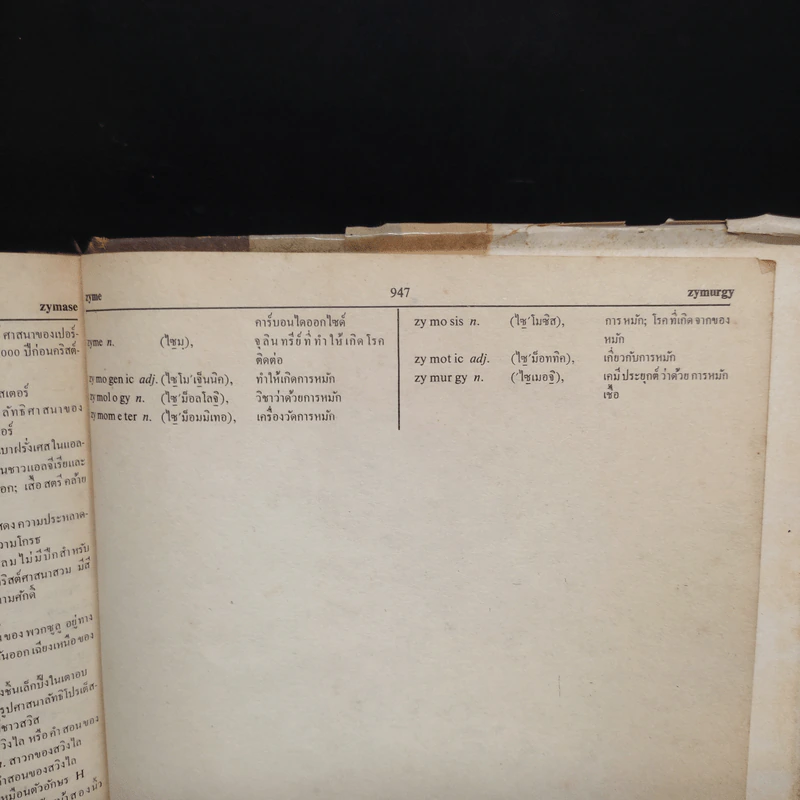 zymase
ศาสนาของเปอร์-
000 ปีก่อนคริสต์-
สเตอร์
ลัทธิศาสนาของ
อร์
บาฝรั่งเศสในแอล-
นชาวแอลจีเรียและ
อก; เสื้อสตรีคล้าย
สดงความประหลาด-
วามโกรธ
ลม ไม่มีปีกสำหรับ
ริสต์ศาสนาสวม มีสี
ามศักดิ์
ของ พวกซูลู อยู่ทาง
ันออกเฉียงเหนือของ
งชั้นเล็กปิ้งในเตาอบ
รูปศาสนาลัทธิโปรเตส-
ชาวสวิส
วิงไล หรือคำสอนของ
. สาวกของสวิงไล
ำสอนของสวิงไล
หมือนตัวอักษร H
zyme 947 zymurgy
คาร์บอนไดออกไซด์
zyme n. (ไซม), จุลินทรีย์ที่ทำให้เกิดโรค
ติดต่อ
zy mo gen ic adj. (ไซโม'เจ็นนิค), ทำให้เกิดการหมัก
zy mol o gy n. (ไซ'ม็อลโลจิ), วิชาว่าด้วยการหมัก
zy mom e ter n. (ไซ'ม็อมมิเทอ), เครื่องวัดการหมัก
zy mo sis n. (ไซ'โมซิส), การหมัก; โรคที่เกิดจากของ
หมัก
zy mot ic adj. (ไซ'ม็อททิค), เกี่ยวกับการหมัก
zy mur gy n. ('ไซเมอจิ), เคมีประยุกต์ว่าด้วยการหมัก
เชื้อ